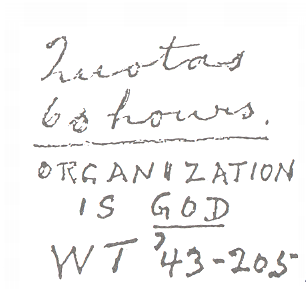 Quotas
60 hours.
ORGANIZATION
IS GOD
WT '43-205